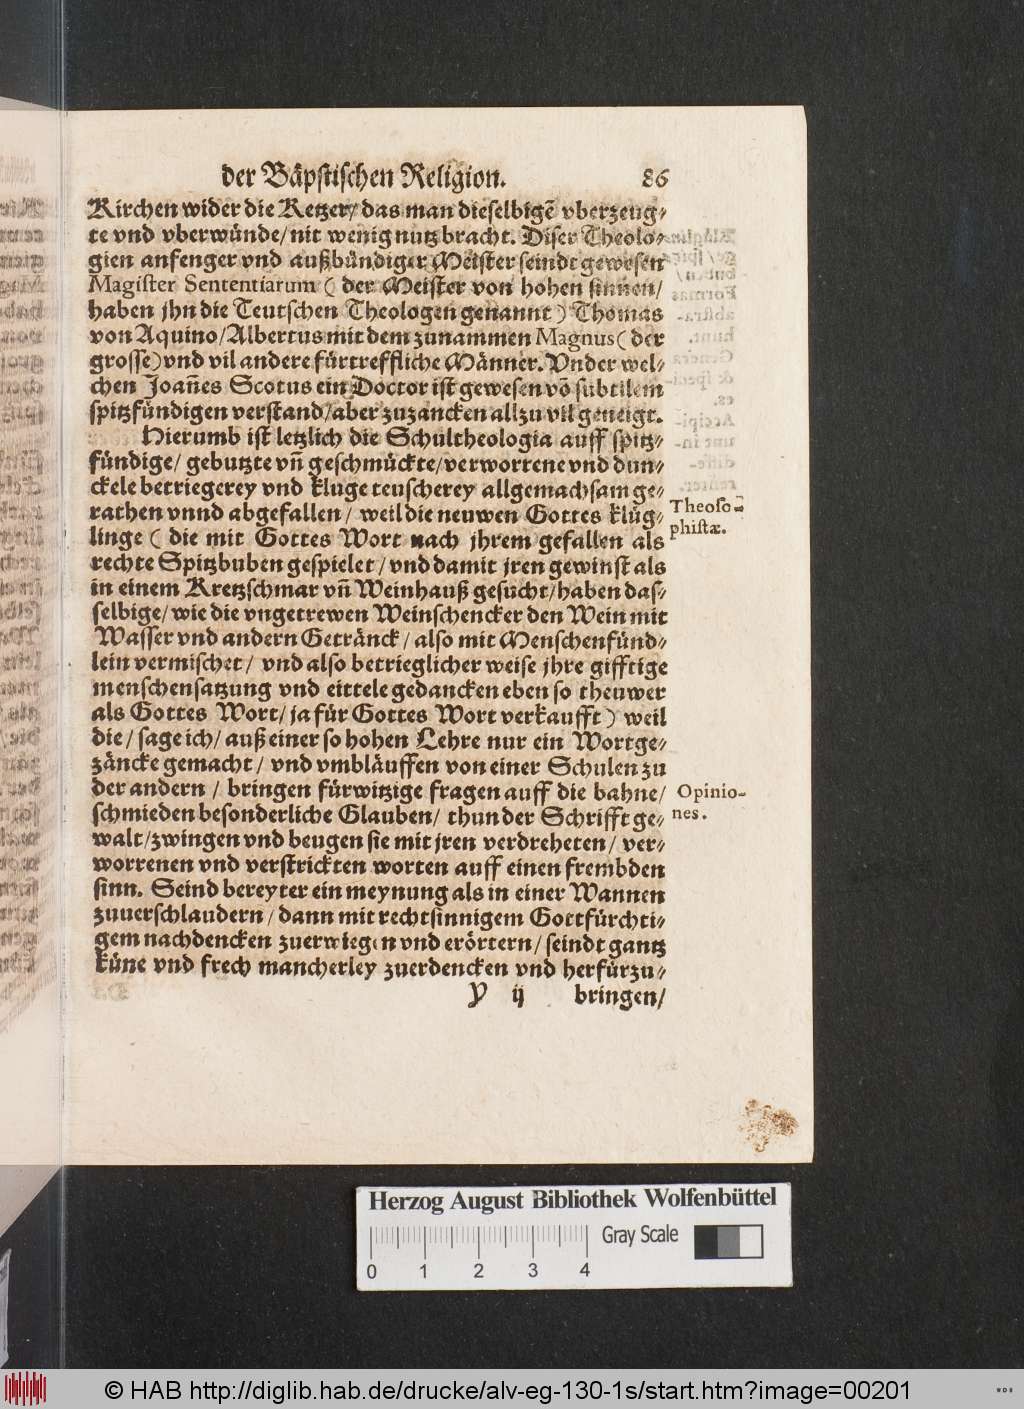 der Bäpstischen Religion. 86
Kirchen wider die Ketzer/ das man dieselbigē vberzeug⸗
te vnd vberwünde/ nit wenig nutz bracht. Diser Theolo⸗
gien anfenger vnd außbündiger Meister seindt gewesen
Magister Sententiarum ( der Meister von hohen sinnen/
haben jhn die Teutschen Theologen genannt ) Thomas
von Aquino/ Albertus mit dem zunammen Magnus ( der
grosse) vnd vil andere fürtreffliche Männer. Vnder wel⸗
chen Joañes Scotus ein Doctor ist gewesen võ subtilem
spitzfündigen verstand/ aber zuzancken allzu vil geneigt.
Hierumb ist letzlich die Schultheologia auff spitz⸗
fündige/ gebutzte vñ geschmückte/ verworrene vnd dun⸗
ckele betriegerey vnd kluge teuscherey allgemachsam ge⸗
rathen vnnd abgefallen/ weil die neuwen Gottes klüg⸗
Theoso-
linge ( die mit Gottes Wort nach jhrem gefallen als
phistæ.
rechte Spitzbuben gespielet/ vnd damit jren gewinst als
in einem Kretzschmar vñ Weinhauß gesucht/ haben das⸗
selbige/ wie die vngetrewen Weinschencker den Wein mit
Wasser vnd andern Getränck/ also mit Menschenfünd⸗
lein vermischet/ vnd also betrieglicher weise jhre gifftige
menschensatzung vnd eittele gedancken eben so theuwer
als Gottes Wort/ ja für Gottes Wort verkaufft ) weil
die/ sage ich/ auß einer so hohen Lehre nur ein Wortge⸗
zäncke gemacht/ vnd vmbläuffen von einer Schulen zu
der andern/ bringen fürwitzige fragen auff die bahne/
Opinio-
schmieden besonderliche Glauben/ thun der Schrifft ge⸗
nes.
walt/ zwingen vnd beugen sie mit jren verdreheten/ ver⸗
worrenen vnd verstrickten worten auff einen frembden
sinn. Seind bereyter ein meynung als in einer Wannen
zuuerschlaudern/ dann mit rechtsinnigem Gottfürchti⸗
gem nachdencken zuerwiegen vnd erörtern/ seindt gantz
küne vnd frech mancherley zuerdencken vnd herfürzu⸗
Y ij bringen/
Herzog August Bibliothek Wolfenbüttel
Gray Scale
0 1 2 3 4
© HAB http://diglib.hab.de/drucke/alv-eg-130-1s/start.htm?image=00201